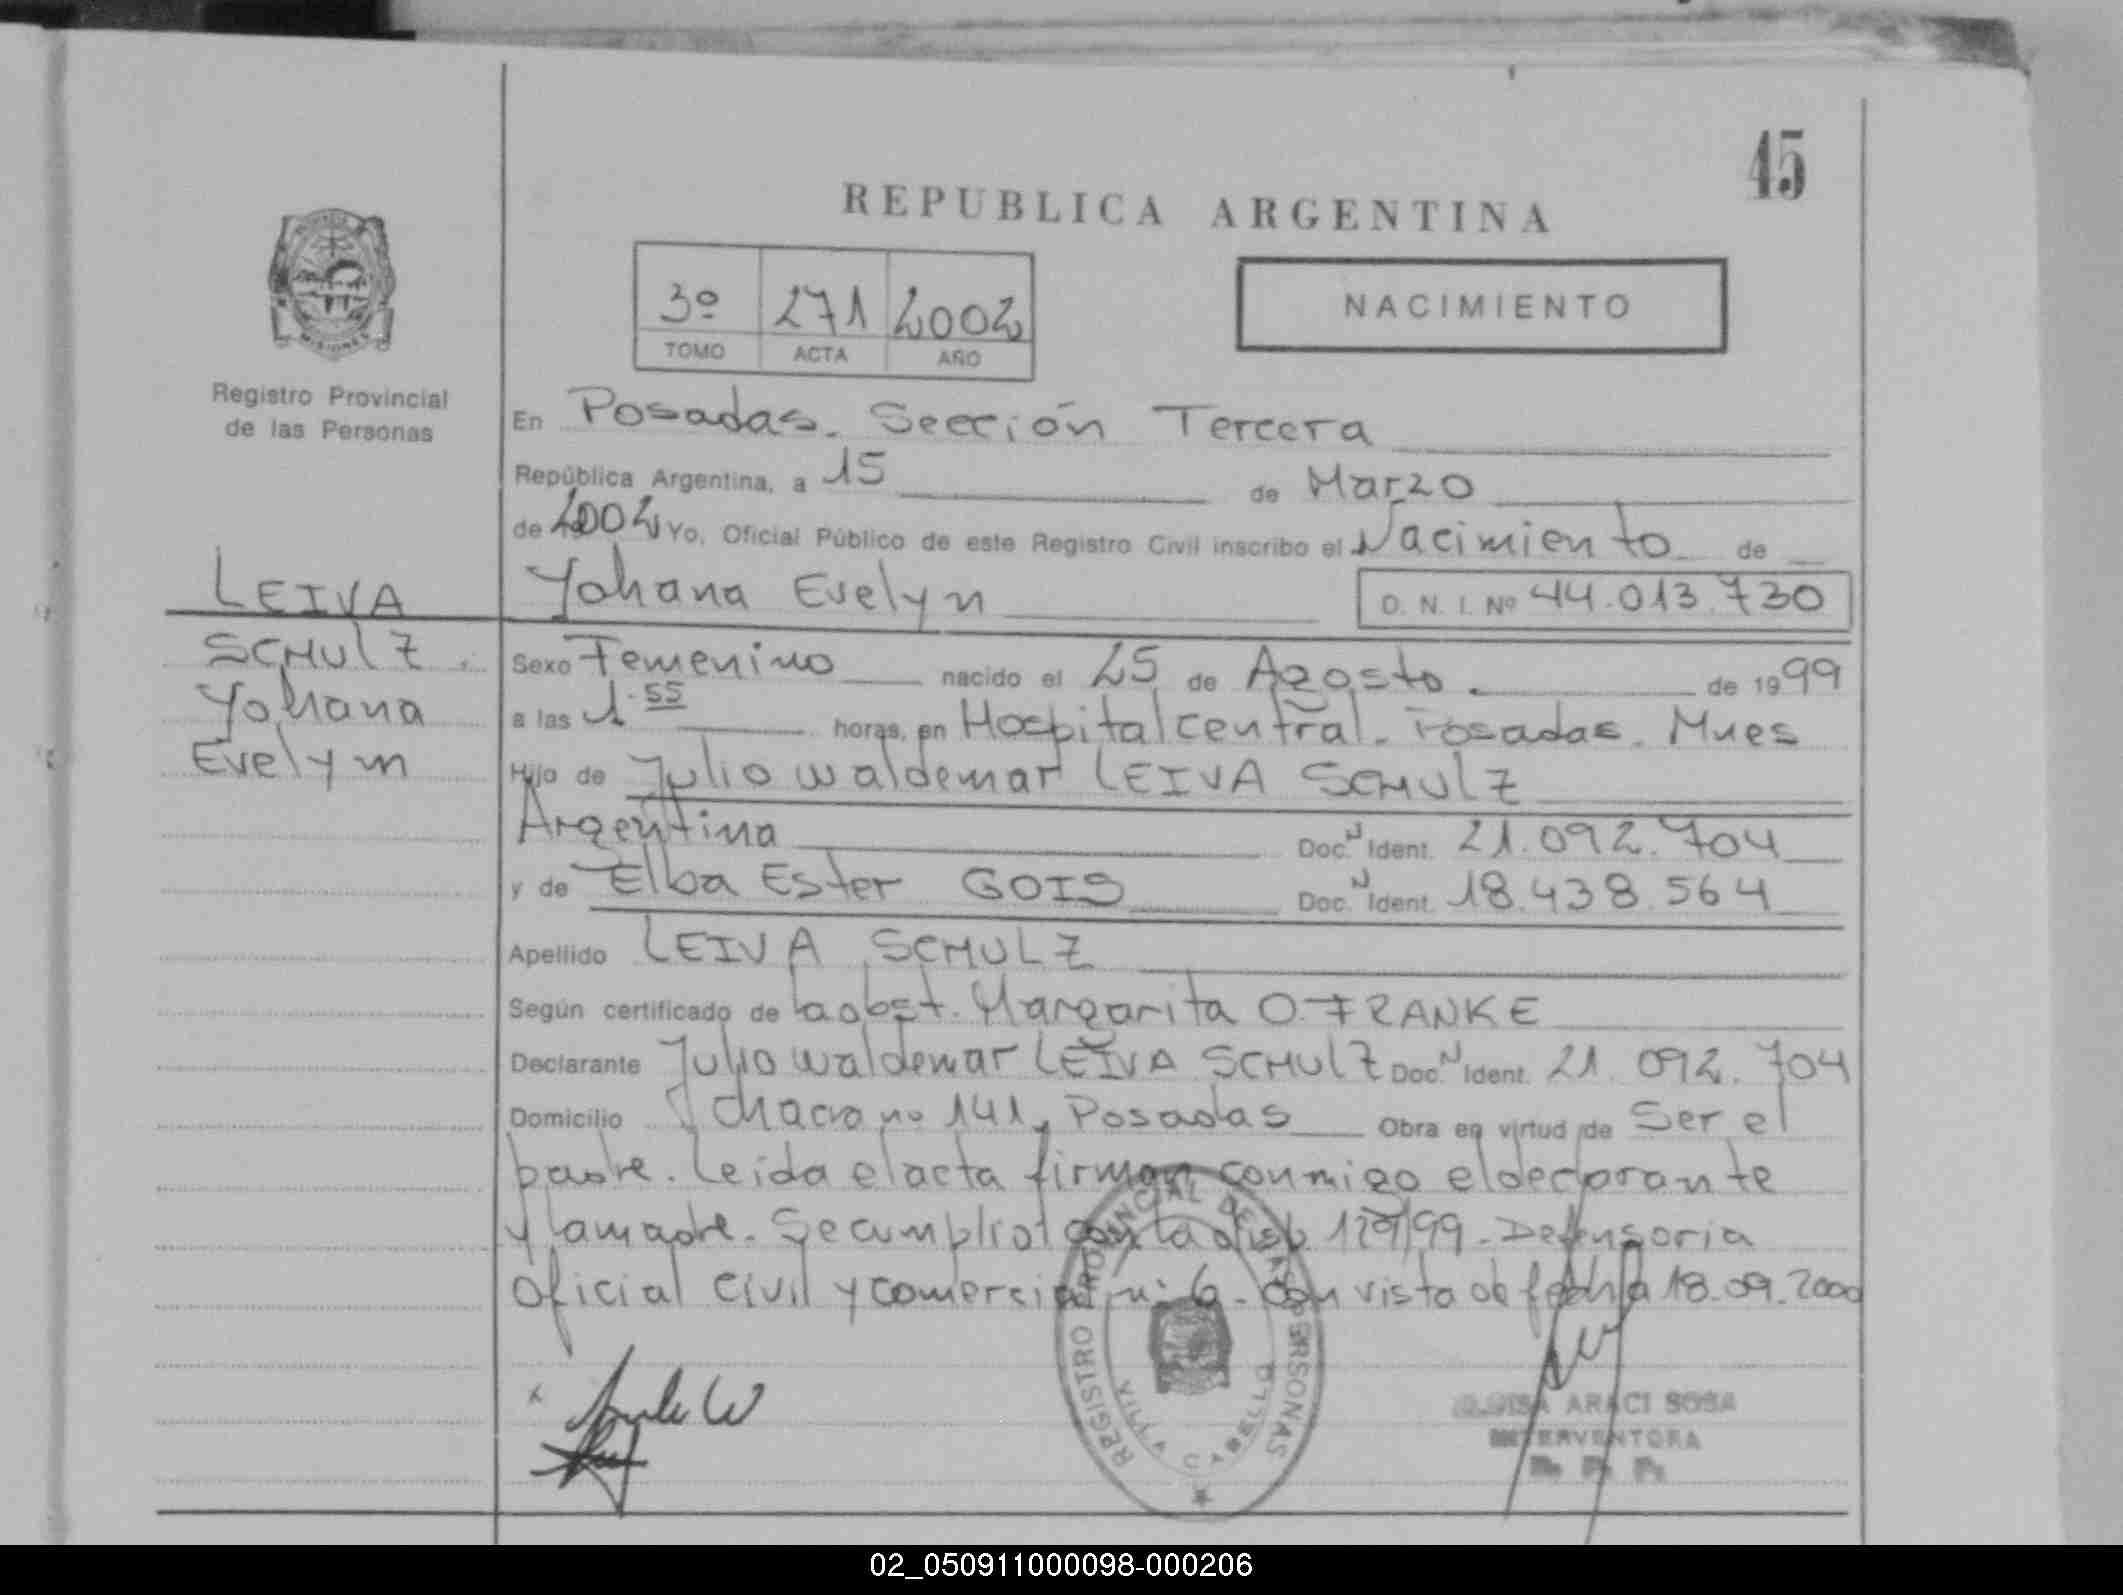 45
REPUBLICA ARGENTINA
3º 271 2002
TOMO ACTA AÑO
NACIMIENTO
MISIONES
Registro Provincial
de las Personas
En Posadas. Sección Tercera
República Argentina, a 15 de Marzo
de 2002 Yo, Oficial Público de este Registro Civil inscribo el Nacimiento de
Yohana Evelyn D. N. I. Nº 44.013.730
LEIVA
SCHULZ.
Yohana
Evelyn
Sexo Femenino nacido el 25 de Agosto. de 1999
a las 1.55 horas, en Hospital central. Posadas. Mnes
Hijo de Julio Waldemar LEIVA SCHULZ
Argentina Doc. N Ident. 21.092.704
y de Elba Ester GOIS Doc. N Ident. 18.438.564
Apellido LEIVA SCHULZ
Según certificado de la obst. Margarita O. FRANKE
Declarante Julio Waldemar LEIVA SCHULZ Doc. N Ident. 21.092.704
Domicilio Chacra nº 141, Posadas Obra en virtud de Ser el
padre. Leida el acta firman conmigo el declarante
y la madre. Se cumplio con la disp. /99. Defensoria
Oficial Civil y comercial nº 6. con vista de fecha 18.09.2000
REGISTRO PROVINCIAL DE LAS PERSONAS
VILLA CABELLO
ARACI SOSA
INTERVENTORA
02_050911000098-000206